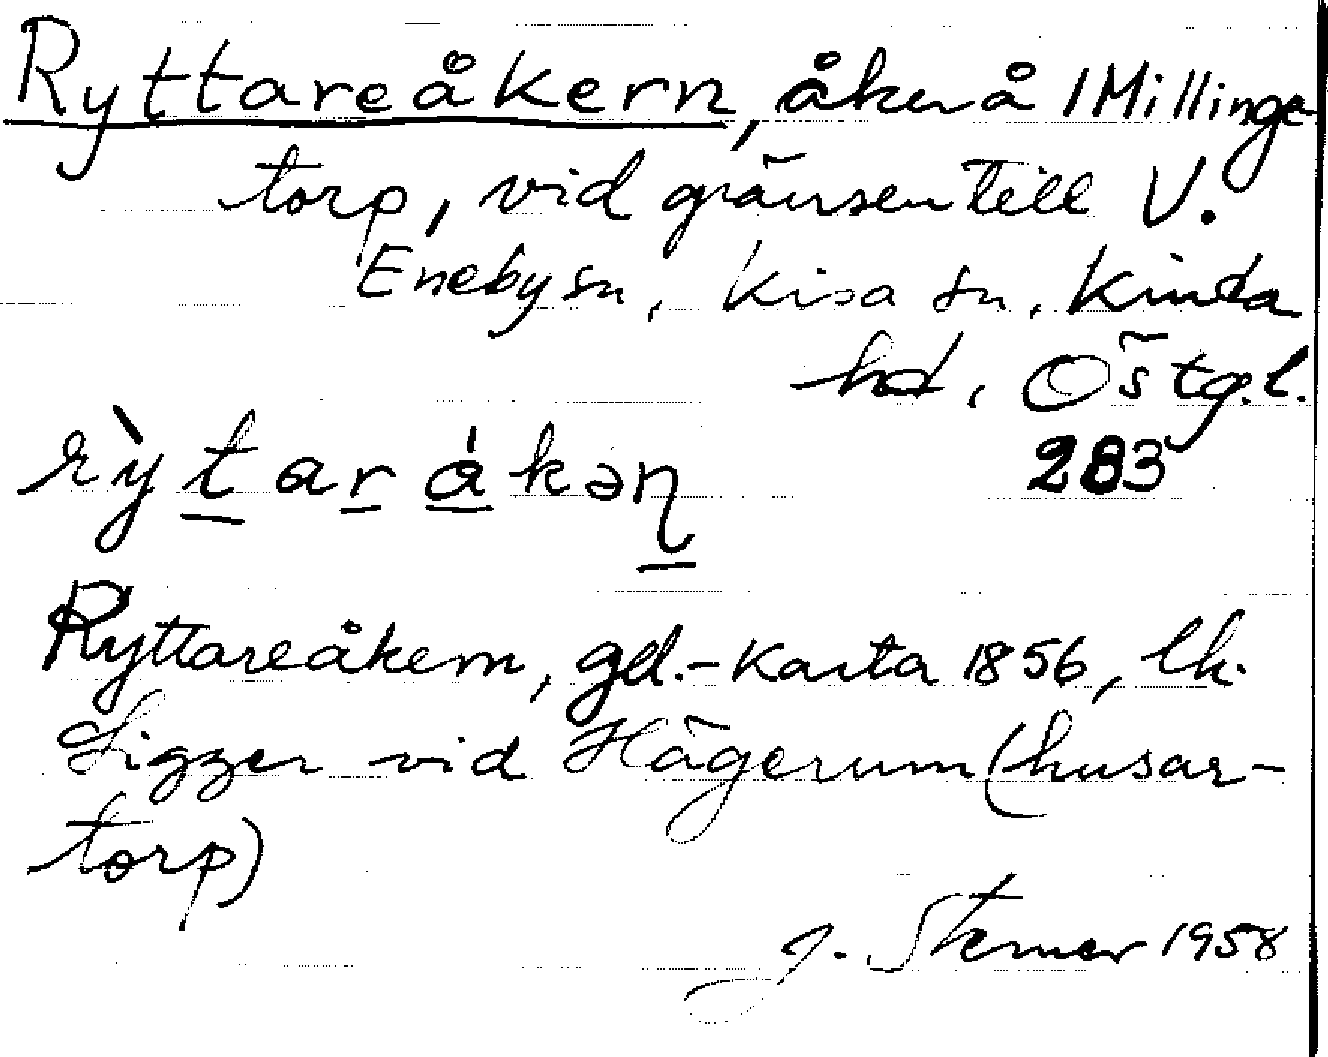 Ryttareåkern, åker å 1 Millinge-
torp, vid gränsen till V.
Eneby sn, Kisa sn, Kinda
hd, Östg.l.
283
rỳtarákəɳ
Ryttareåkern, gd.-karta 1856, lh.
Ligger vid Hägerum (husar-
torp)
J. Sterner 1958